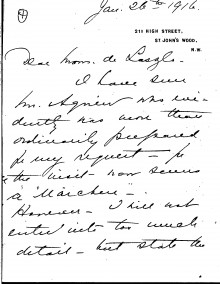 4
Jan. 26th 1916.
211 HIGH STREET,
ST JOHN'S WOOD,
N.W.
Dear Mons. de Laszlo.
I have seen
Mr. Agnew who evi-
dently was more than
ordinarily prepared
for my request - for
the visit now seems
a "Marchen" -.
However - I will not
enter into too much
detail - but state the